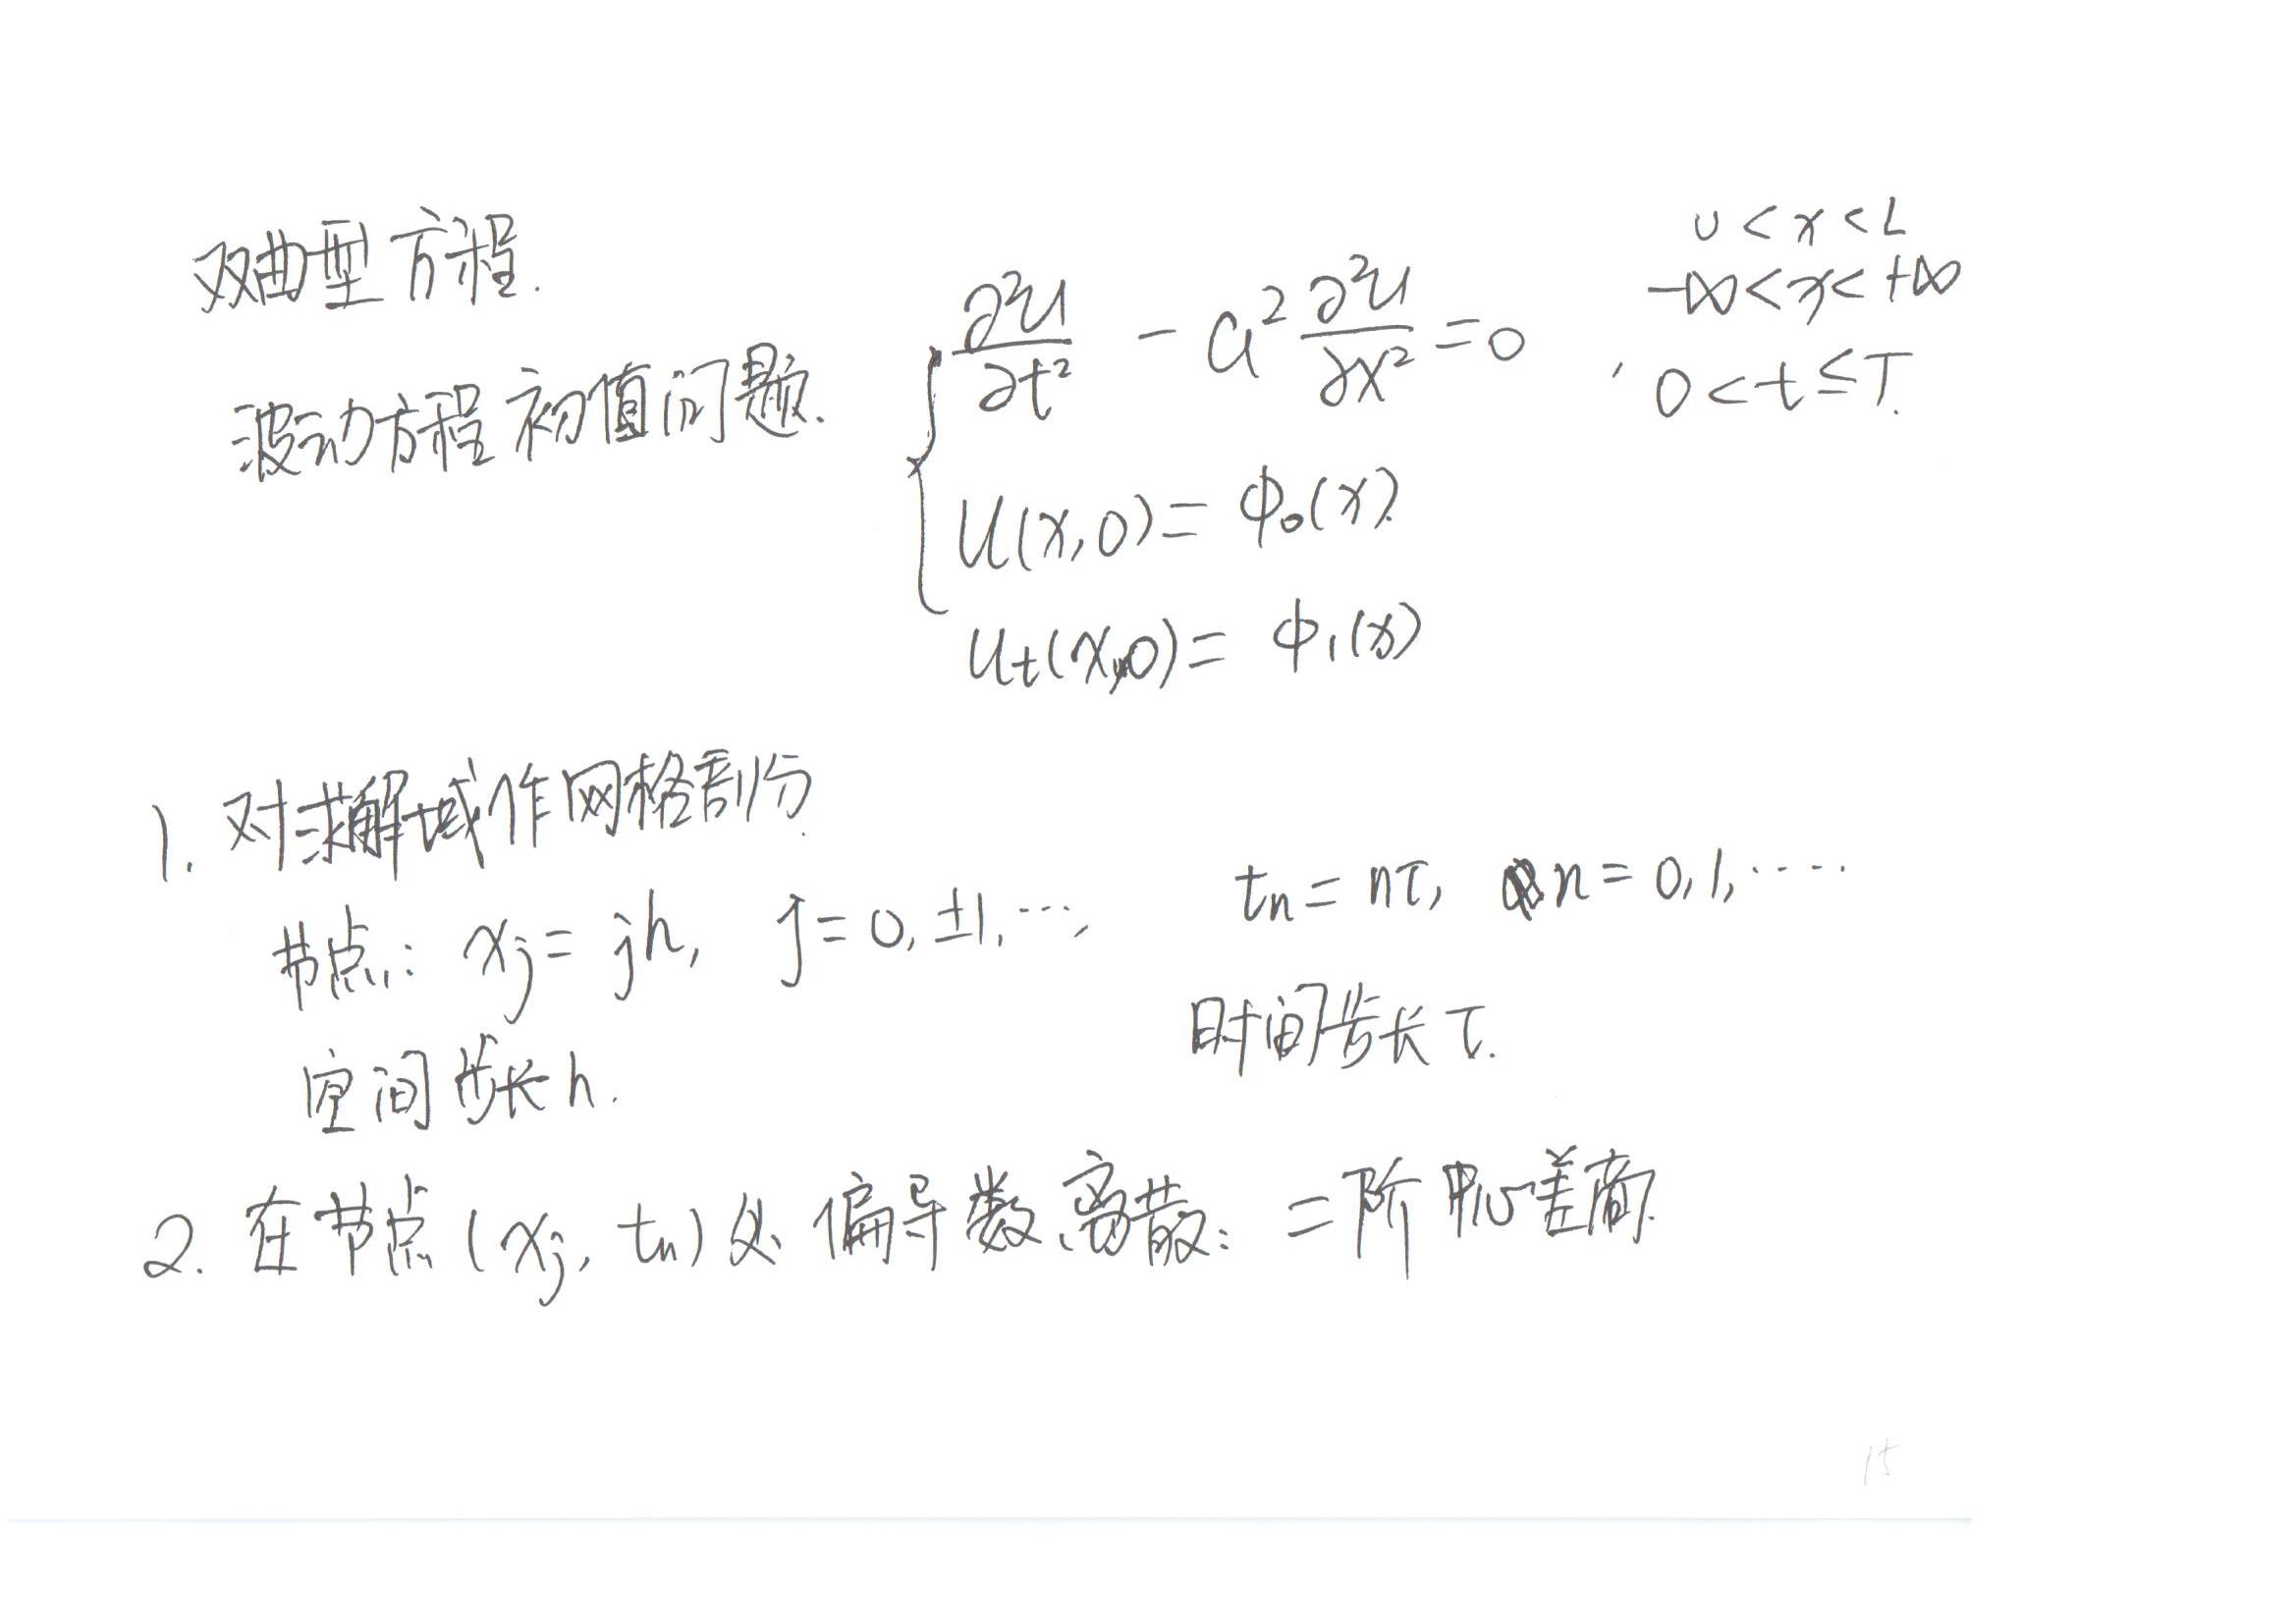 双曲型方程.
0 < x < L
-∞ < x < +∞
波动方程初值问题. { ∂²u/∂t² - a² ∂²u/∂x² = 0 , 0 < t ≤ T.
u(x,0) = φ₀(x).
u_t(x,0) = φ₁(x)
1. 对求解域作网格剖分.
节点: x_j = jh, j = 0, ±1, ⋯, t_n = nτ, n = 0, 1, ⋯⋯
空间步长 h. 时间步长 τ.
2. 在节点 (x_j, t_n) 处 偏导数离散: 二阶中心差商.
15